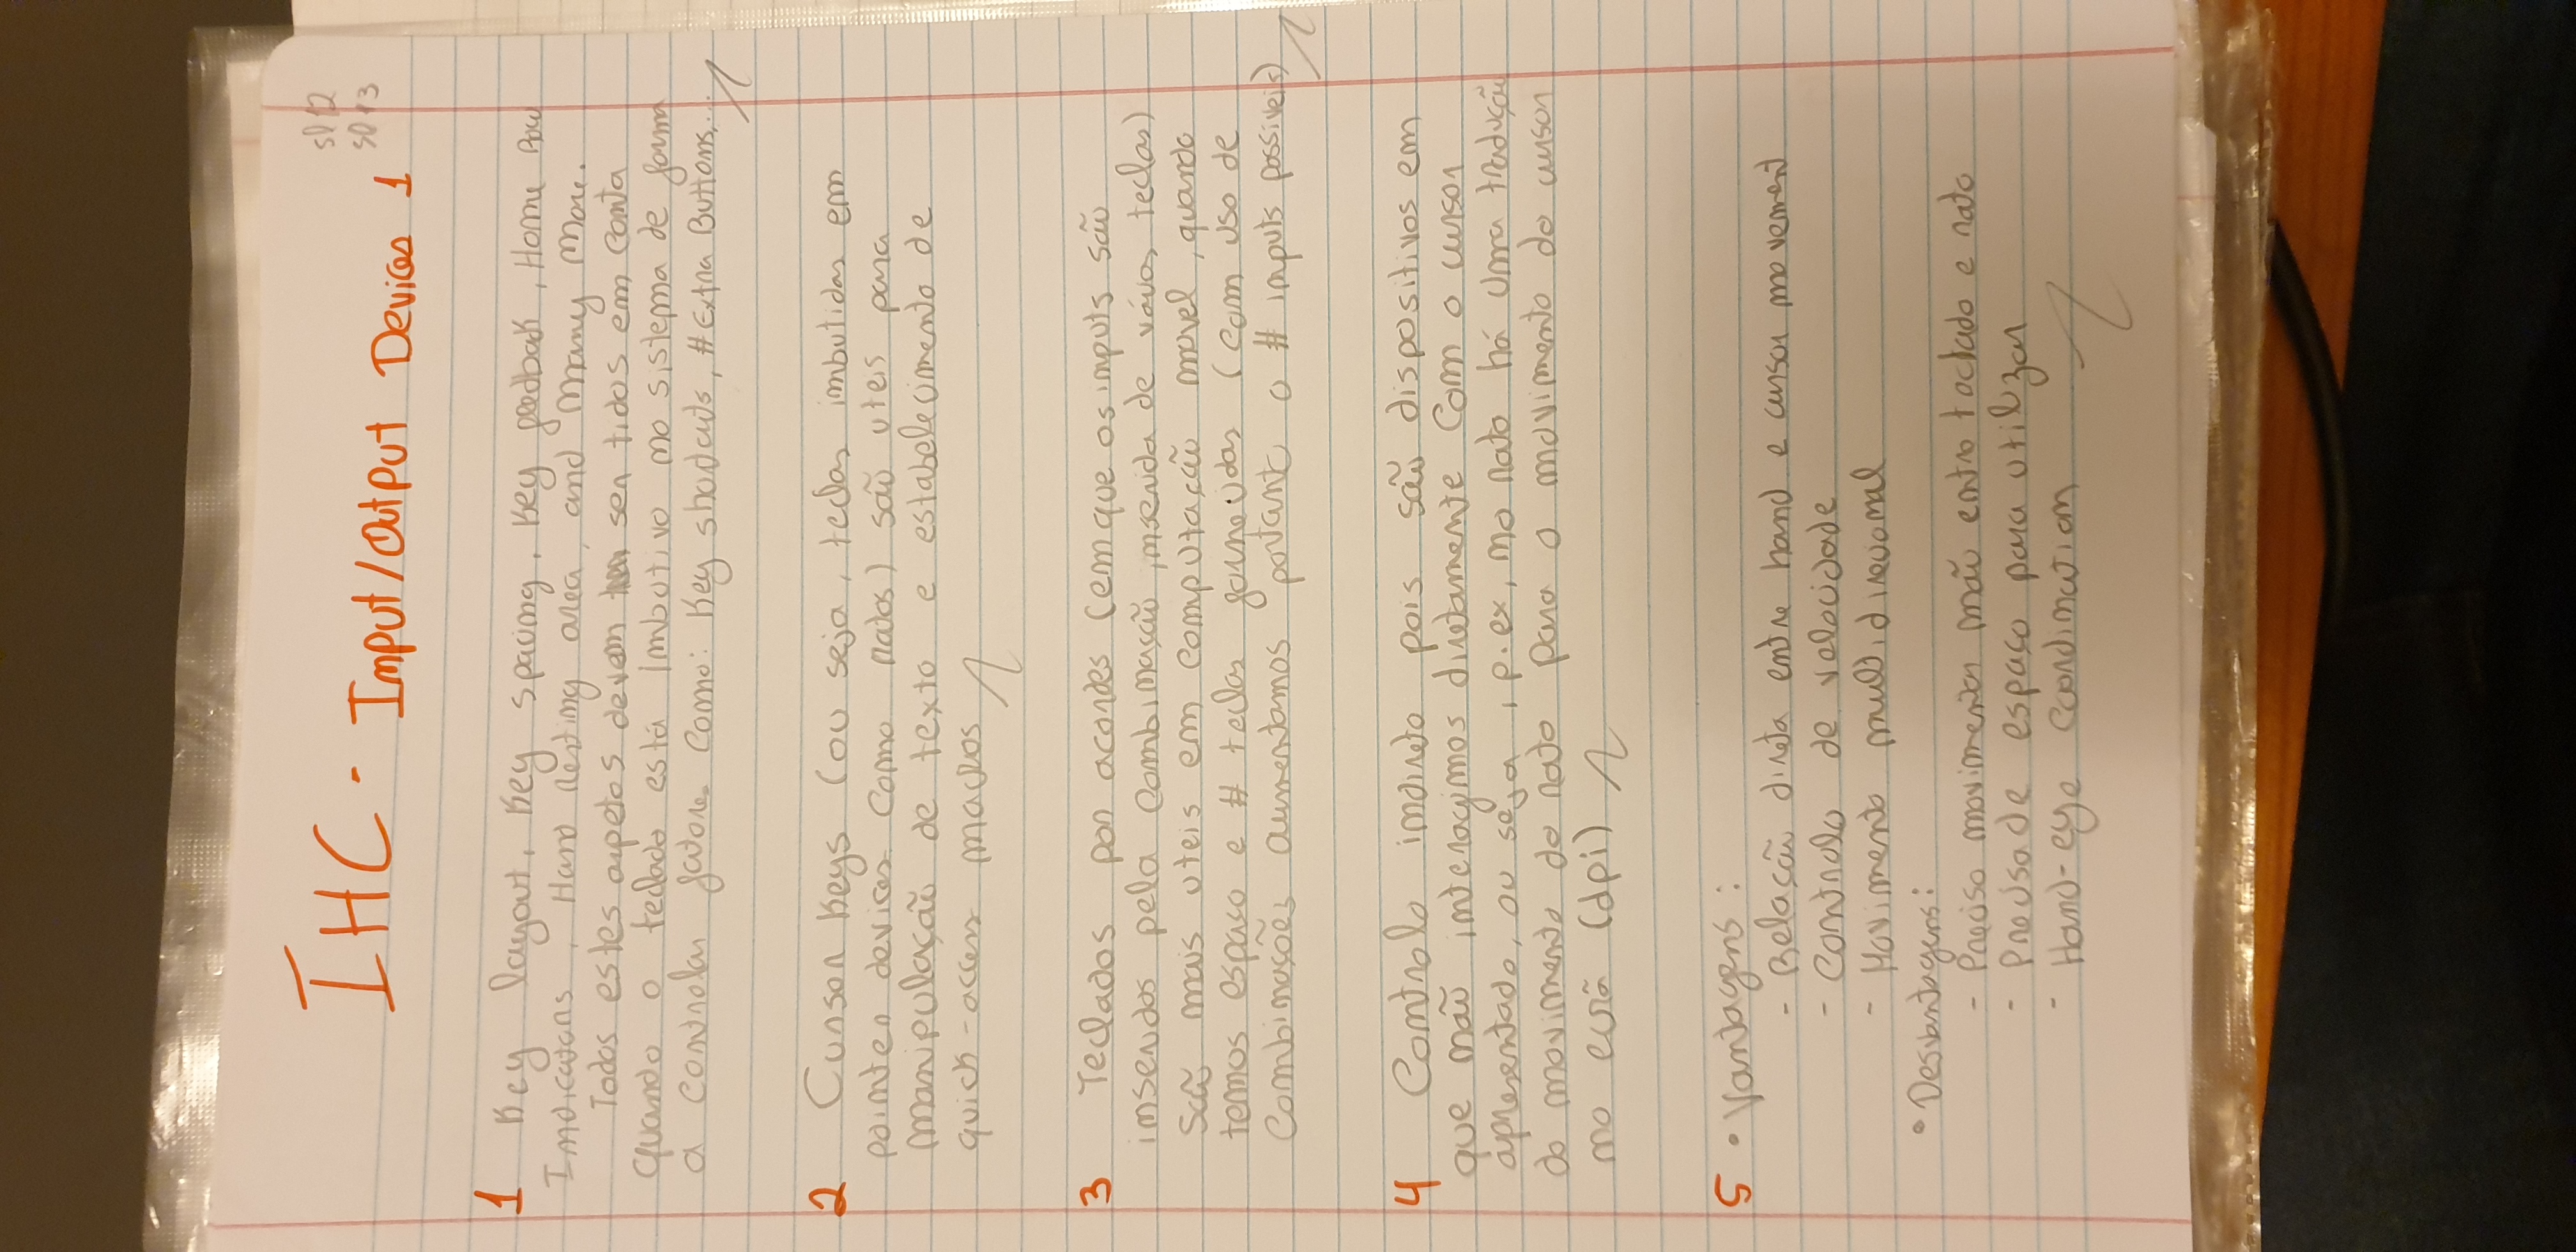 IHC - Input/Output Devices 1
sl 12
sl 13
1 Key layout, Key spacing, Key feedback, Home Row
Indicators, Hand resting area, and many more.
Todos estes aspetos devem ser tidos em conta
quando o teclado está imbutivo no sistema de forma
a controlar fatores como: Key shortcuts, #Extra Buttons,...
2 Cursor Keys (ou seja, teclas imbutidas em
pointer devices como ratos) são uteis para
manipulação de texto e estabelecimento de
quick-access macros
3 Teclados por acordes (em que os inputs são
inseridos pela combinação inserida de várias teclas)
São mais uteis em computação movel, quando
temos espaço e # teclas (com uso de
combinações aumentamos portanto o # inputs possiveis)
4 Controlo indireto pois são dispositivos em
que não interagimos diretamente com o cursor
apresentado, ou seja, p.ex, no rato há uma tradução
do movimento do rato para o movimento do cursor
no ecrã (dpi)
5 • Vantagens:
- Relação direta entre hand e cursor movement
- Controlo de velocidade
- Movimento multidirecional
• Desvantagens:
- Preciso movimentar mão entre teclado e rato
- Precisa de espaço para utilizar
- Hand-eye coordination